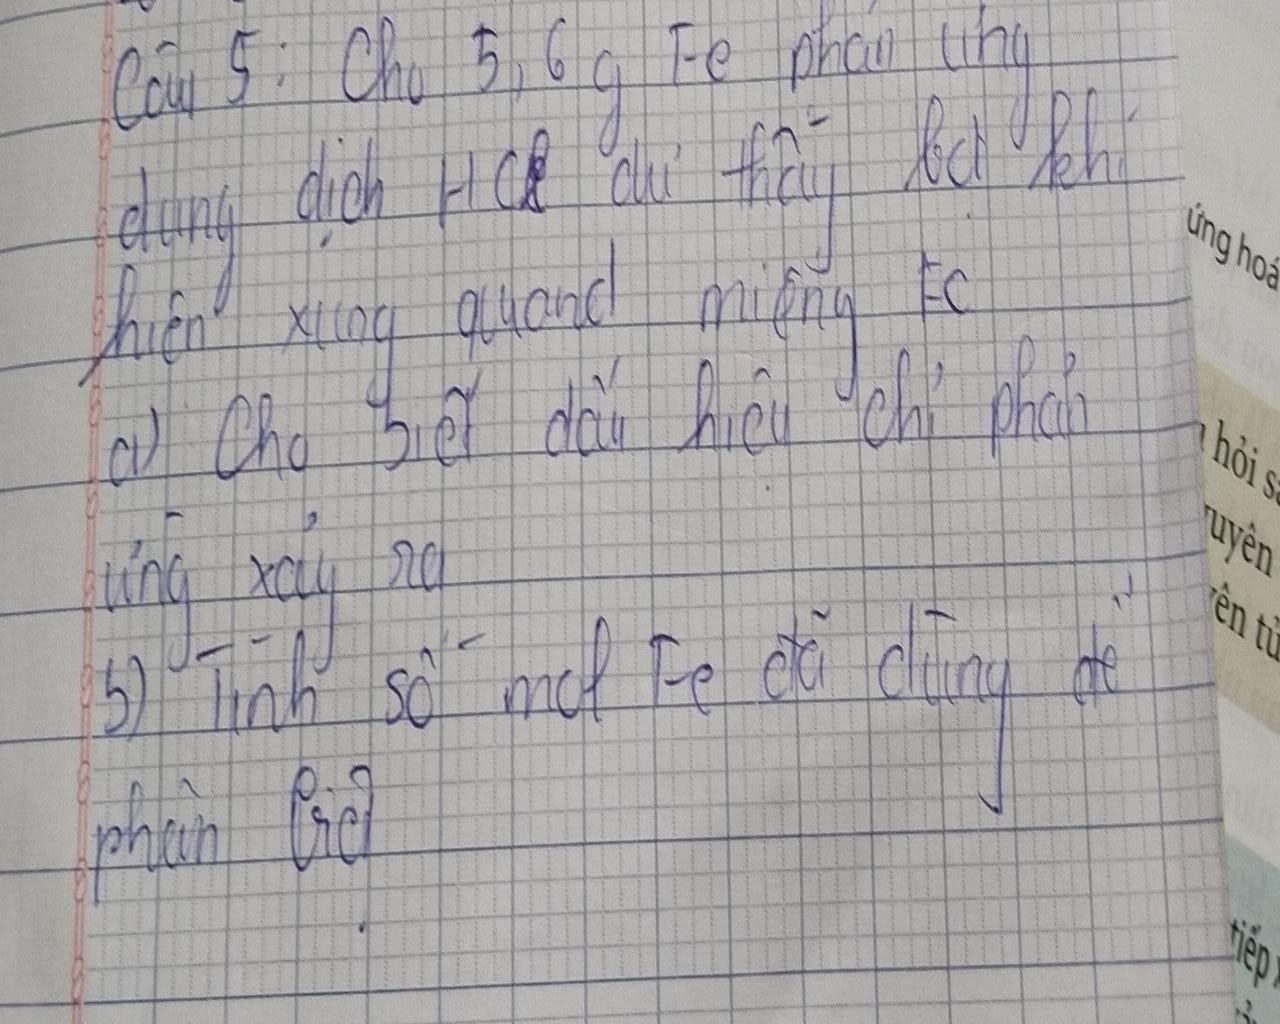 Câu 5: Cho 5,6 g Fe phản ứng
dung dịch HCl dư thấy bọt khí
hiện xung quand miếng Fe
a) Cho biết dấu hiệu chỉ phản
ứng xảy ra
b) Tính số mol Fe đã dùng để
phản
ứng hoá
hỏi
uyên
tiếp